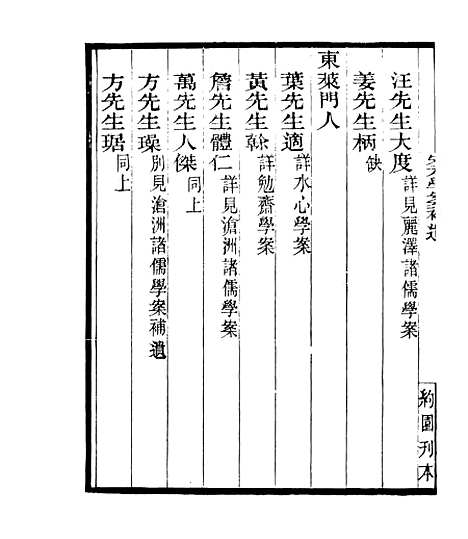 宋元學案補遺
約園刊本
汪先生大度詳見麗澤諸儒學案
姜先生柄缺
東萊門人
葉先生適詳水心學案
黃先生榦詳勉齋學案
詹先生體仁詳見滄洲諸儒學案
萬先生人傑同上
方先生璪別見滄洲諸儒學案補遺
方先生琚同上